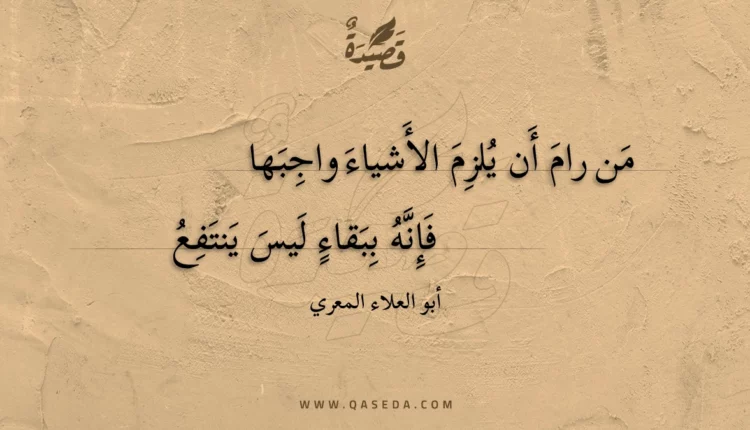 قَصِيدَةٌ
مَن رامَ أَن يُلزِمَ الأَشياءَ واجِبَها
فَإِنَّهُ بِبَقاءٍ لَيسَ يَنتَفِعُ
أبو العلاء المعري
WWW.QASEDA.COM